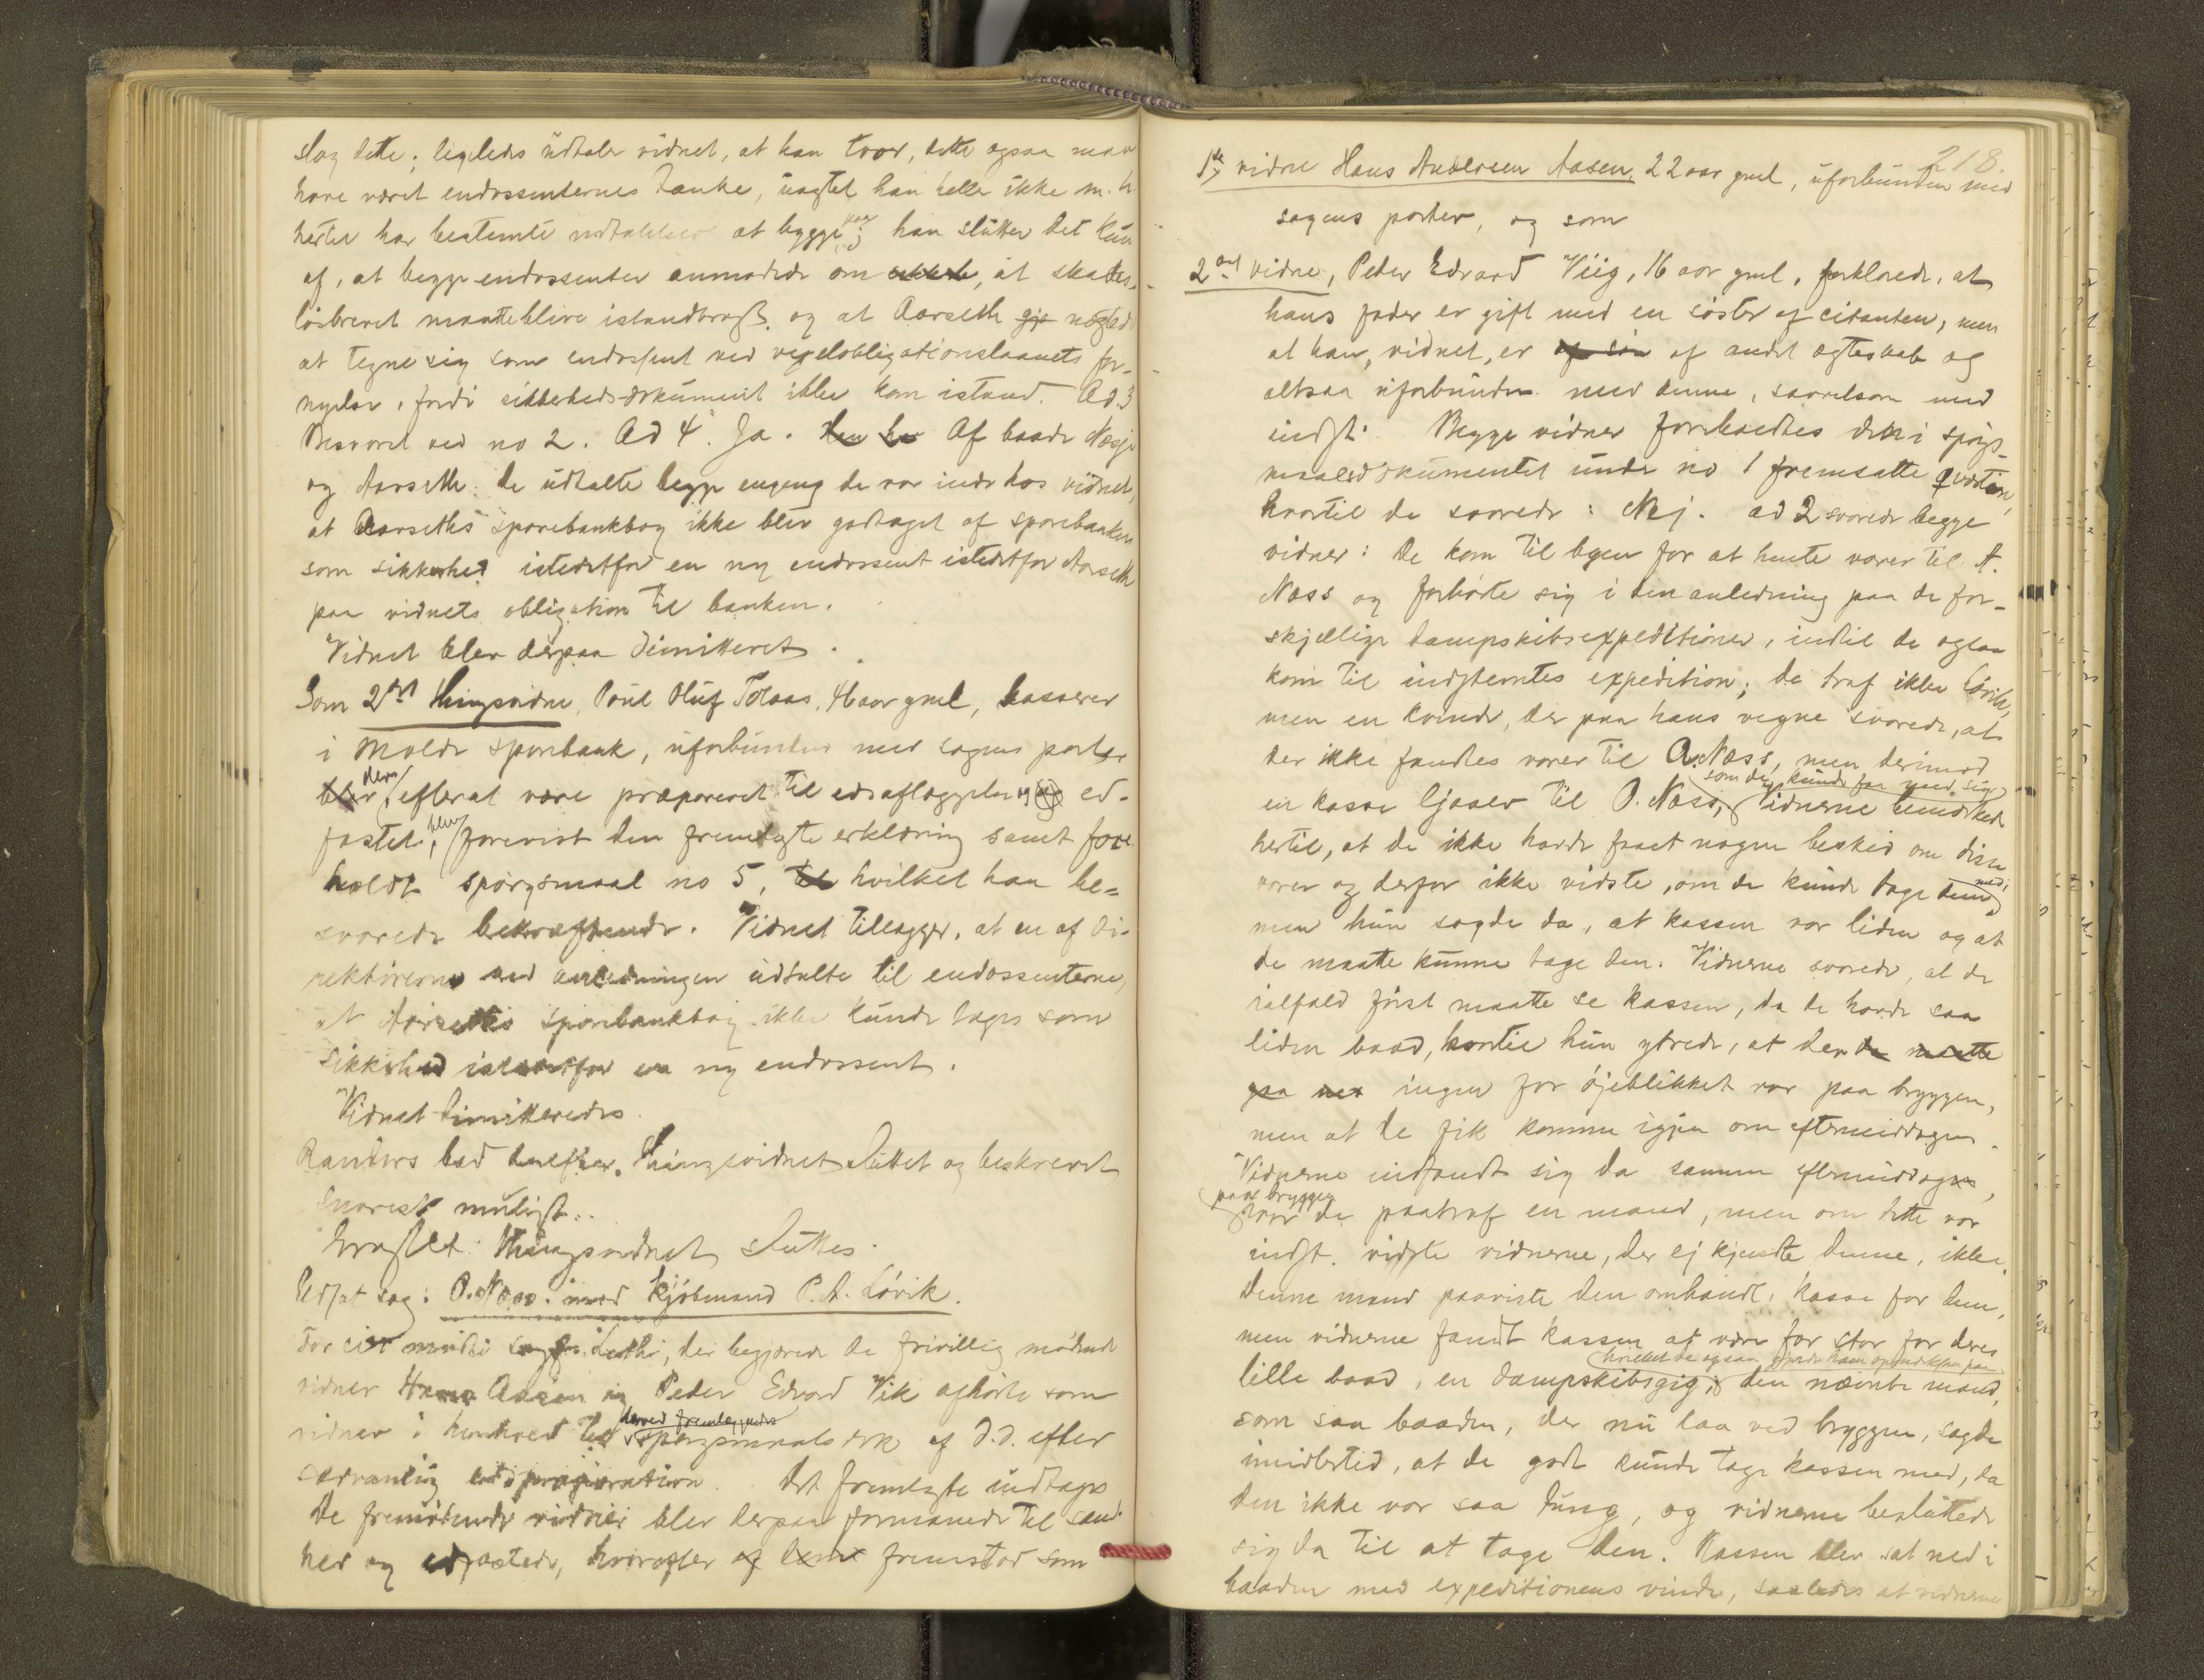 slog dette; ligeledes udtaler vidnet, at han tror, dette ogsaa maa
have været endossenternes tanke, uagtet han heller ikke m. h
hertil har bestemte udtalelser at bygge paa; han slutter det kun
af, at begge endossenter anmodede om, at skades-
løsbrevet maatte blive istandbragt, og at Aarseth nægtede
at tegne sig som endossent ved vexelobligationslaanets for-
nyelse, fordi sikkerhedsdokument ikke kom istand. Ad 3
Besvaret ved no 2. Ad 4. Ja. Af baade Næsje
og Aarseth. De udtalte begge engang de var inde hos vidnet,
at Aarseths sparebankbog ikke blev godtaget af sparebanken
som sikkerhed istedetfor en ny endossent istedetfor Aarseth
paa vidnets obligation til banken.
Vidnet blev derpaa dimitteret.
Som 2det thingsvidne, Poul Oluf Tolaas, 46 aar gml, kasserer
i Molde sparebank, uforbunden med sagens parter
der, efterat være præpareret til edsaflæggelse og ed-
fæstet, blev forevist den fremlagte erklæring samt fore-
holdt spørgsmaal no 5, hvilket han be-
svarede bekræftende. Vidnet tillægger, at en af di-
rektørerne ved anledningen udtalte til endossenterne,
at Aarseths sparebankbog ikke kunde tages som
sikkerhed istedetfor en ny endossent.
Vidnet dimitteredes.
Randers bad derefter thingsvidnet sluttet og beskrevet
snarest muligt.
Eragtet: Thingsvidnet sluttes.
Udsat sag: P. Næss mod kjøbmand P. A. Løvik.
For cit mødte sagf., der begjærede de frivillig mødende
vidner Hans Aasen og Peder Edvard Vik afhørte som
vidner i henhold til derved fremlagte spørgsmaals dok af d.d. efter
sædvanlig edspræparation. Det fremlagte indtages
De fremmødende vidner blev derpaa formanede til sand-
hed og edfæstede, hvorefter fremstod som
218.
1ste vidne Hans Andersen Aasen, 22 aar gml, uforbunden med
sagens parter, og som
2det vidne, Peder Edvard Viig, 16 aar gml, forklarede, at
hans fader er gift med en søster af citanten, men
at han, vidnet, er af andet ægteskab og
altsaa uforbunden med denne, saavelsom med
indst. Begge vidner foreholdtes det i spørgs-
maalsdokumentet under no 1 fremsatte qvæstion,
hvortil de svarede: Nej. ad 2 svarede begge
vidner: De kom til byen for at hente varer til A.
Næss og forhørte sig i den anledning paa de for-
skjellige dampskibsexpeditioner, indtil de ogsaa
kom til indstevntes expedition; de traf ikke Løvik,
men en kvinde, der paa hans vegne svarede, at
der ikke fandtes varer til A. Næss, men derimod
en kasse ljaaer til P. Næss, som de kunde faa med sig. Vidnerne bemærkede
hertil, at de ikke havde faaet nogen besked om disse
varer og derfor ikke vidste, om de kunde tage dem med;
men hun sagde da, at kassen var liden og at
de maatte kunne tage den. Vidnerne svarede, at de
ialfald først maatte se kassen, da de havde saa
liden baad, hvortil hun ytrede, at der
ingen for øjeblikket var paa bryggen,
men at de fik komme igjen om eftermiddagen.
Vidnerne indfandt sig da samme eftermiddag
paa bryggen hvor de paatraf en mand, men om dette var
indst. vidste vidnerne, der ej kjendte denne, ikke.
Denne mand paaviste den omhandl. kasse for dem,
men vidnerne fandt kassen at være for stor for deres
lille baad, en dampskibsgig, hvilket de ogsaa gjorde ham opmærksom paa; den nævnte mand,
som saa baaden, der nu laa ved bryggen, sagde
imidlertid, at de godt kunde tage kassen med, da
den ikke var saa tung, og vidnerne besluttede
sig da til at tage den. Kassen blev sat ned i
baaden med expeditionens vinde, saaledes at vidnerne